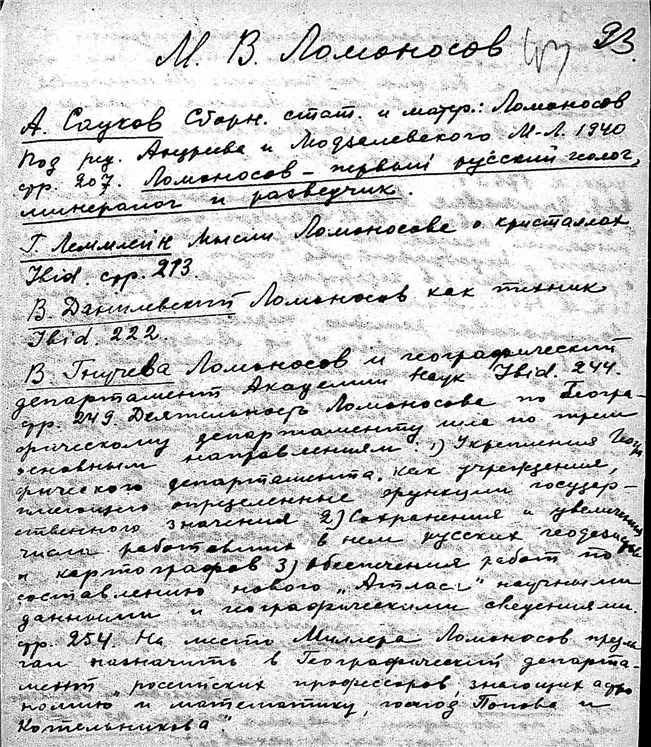 М. В. Ломоносов 93.
А. Сауков Сборн. стат. и матер.: Ломоносов
Под ред. Андреева и Модзалевского М-Л. 1940
стр. 207. Ломоносов – первый русский геолог,
минералог и разведчик.
Г. Леммлейн Мысли Ломоносова о кристаллах
Ibid. стр. 213
В. Данилевский Ломоносов как техник
Ibid. 222.
В Гнучева Ломоносов и географический
департамент Академии Наук Ibid. 244.
стр. 249. Деятельность Ломоносова по Геогра-
фическому департаменту шла по трем
основным направлениям: 1) Укрепления Геогр
фического департамента, как учреждения,
определенные функции государ-
ственного значения 2) Сохранения и увеличения
числа работавших в нем русских геодезистов
и картографов 3) Обеспечения работ по
составлению нового „Атласа" научными
данными и географическими сведениями.
стр. 254. На место Миллера Ломоносов предла
гал назначить в Географический департа-
мент „российских профессоров, знающих астро
номию и математику, господ Попова и
Котельникова".